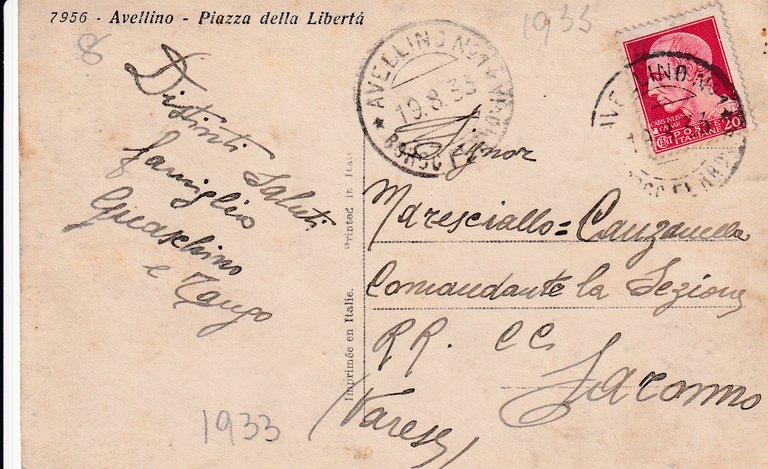 7956 - Avellino - Piazza della Libertá
1933
Distinti Saluti
famiglia
e
AVELLINO Nº1
19.8.33
AVELLINO Nº1
POSTE
ITALIANE
CENT 20
Printed in Italy
Imprimée en Italie.
Signor
Maresciallo=
Comandante la Sezione
RR. CC
Saronno
(Varese)
1933